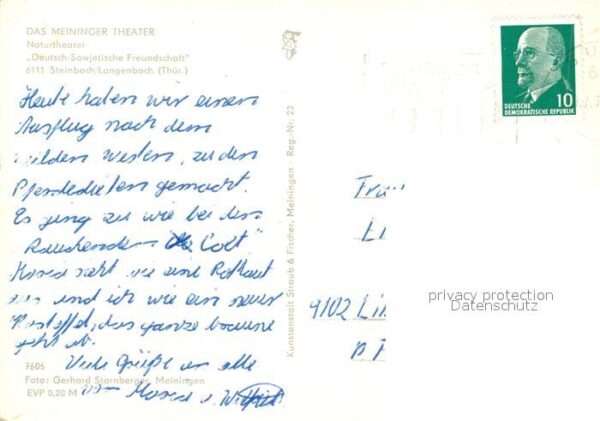 DAS MEININGER THEATER
Naturtheater
„Deutsch-Sowjetische Freundschaft"
6111 Steinbach/Langenbach (Thür.)
Heute haben wir einen
Ausflug nach dem
wilden Westen, zu den
Pferdedieben gemacht.
Es ging zu wie bei den
Rauchenden Colt"
sieht wie eine Rothaut
aus und ich wie ein neuer
das ganze
geht ab.
Viele Grüße an alle
7605
Foto: Gerhard Starnberger, Meiningen
EVP 0,20 M
Kunstanstalt Straub & Fischer, Meiningen · Reg.-Nr. 23
DEUTSCHE
DEMOKRATISCHE REPUBLIK
10
9102 Li
privacy protection
Datenschutz